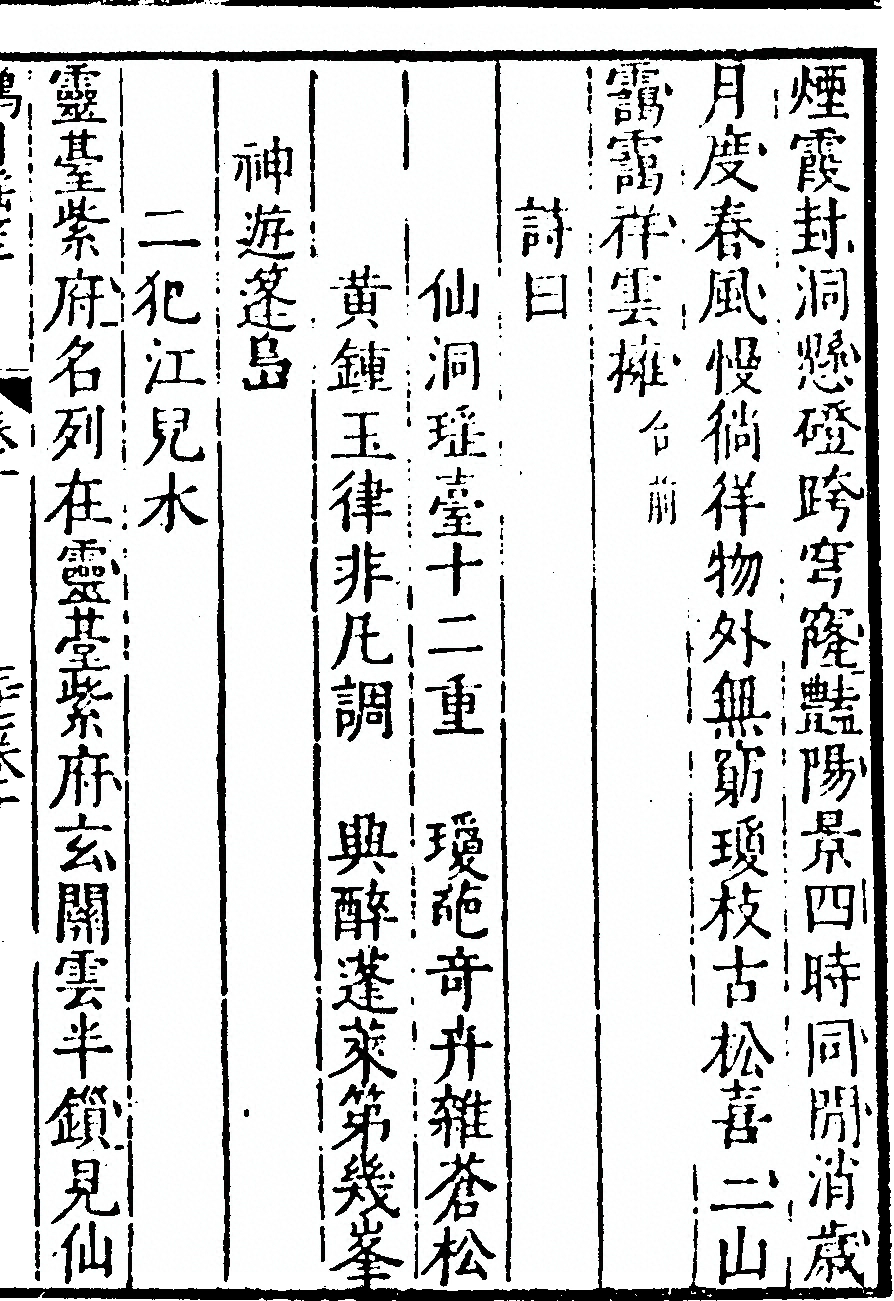 煙霞封洞懸磴跨穹窿豔陽景四時同閒消歲
月度春風慢徜徉物外無窮瓊枝古松喜二山
靄靄祥雲擁合前
詩曰
仙洞瑶臺十二重 瓊葩奇卉雜蒼松
黄鍾玉律非凡調 興醉蓬萊第幾峯
神遊蓬島
二犯江兒水
靈臺紫府名列在靈臺紫府玄關雲半鎖見仙